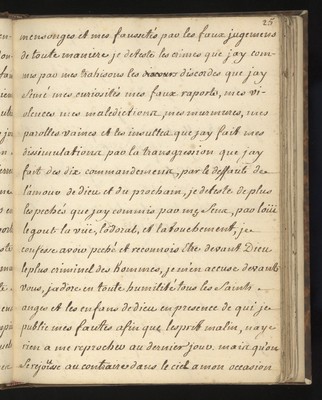 25
mensonges et mes fausetés par les faux jugemens
de toute maniere je deteste les crimes que jay com-
mes par mes trahisons les discordes que jay
semé mes curiosités mes faux raports, mes vi-
olences mes maledictions, mes murmures, mes
parolles vaines et les insultes que jay fait mes
dissimulations par la transgression que jay
fait des dix commandemens, par le deffaute de
lamour de dieu et du prochain, je deteste de plus
les pechés que jay commis par mes sens, par louïe
le gout la vüe, lodorat, et latouchement, je
confesse avoir peché et reconnois etre devant Dieu
le plus criminel des hommes, je men accuse devant
vous, jadore en toute humilité tous les saints
anges et les enfans de dieu en presence de qui je
publie mes fautes afin que lesprit malin, naye
rien a me reprocher au dernier jour, mais qu'on
se rejoüisse au contraire dans le ciel a mon occasion